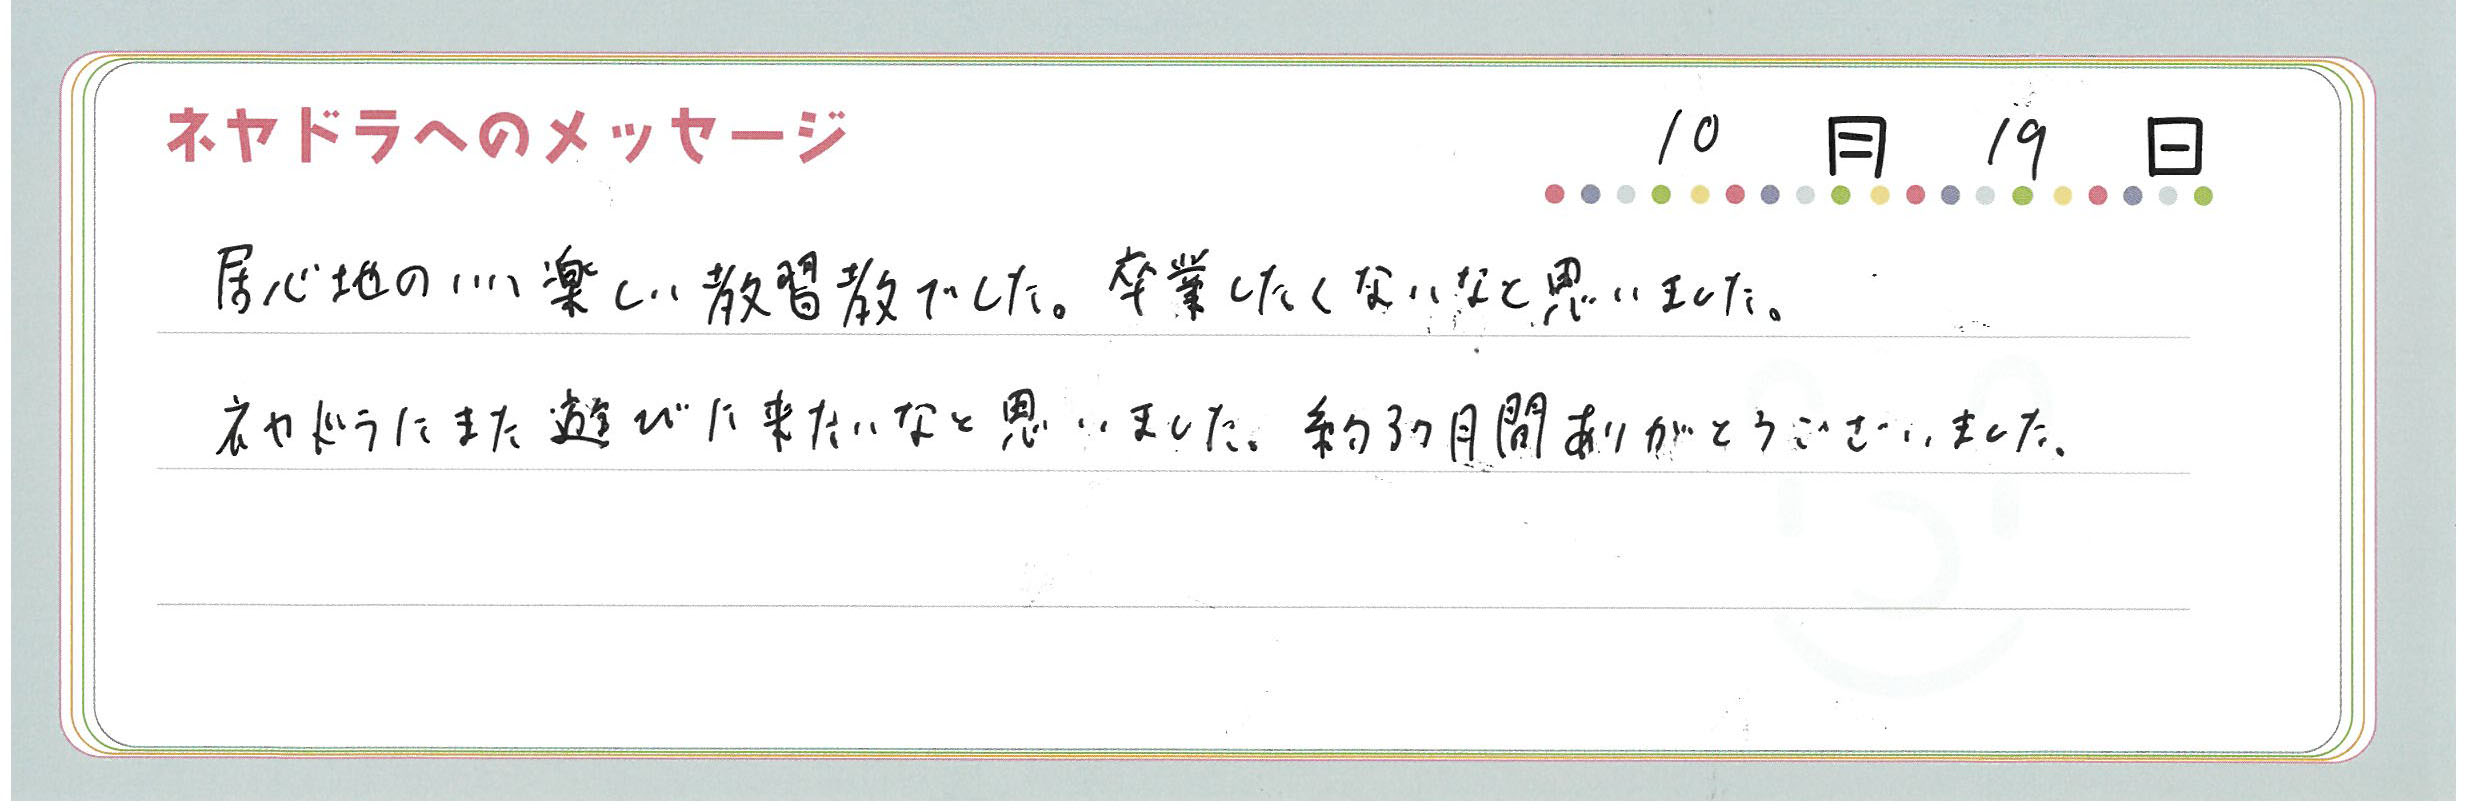 ネヤドラへのメッセージ
10月19日
居心地のいい楽しい教習教でした。卒業したくないなと思いました。
ネヤドラにまた遊びに来たいなと思いました。約3ヶ月間ありがとうございました。